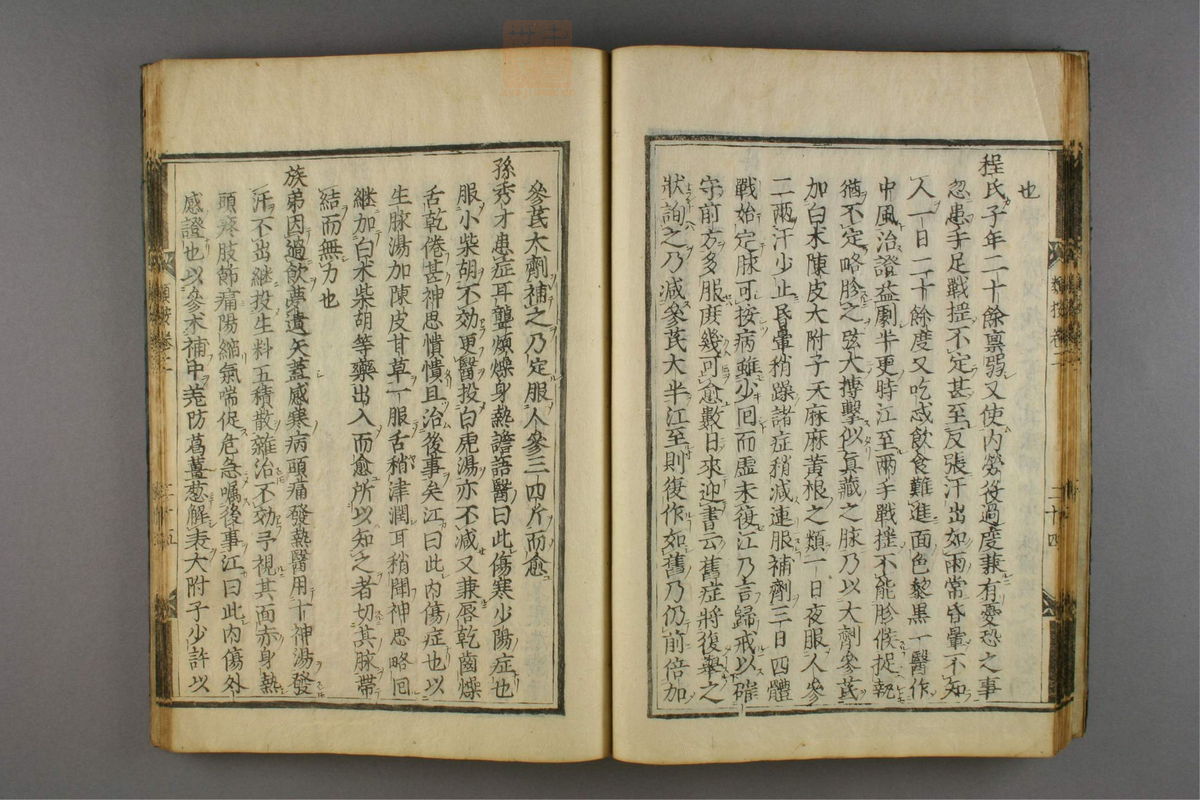 也
程氏子年二十餘禀弱又使內勞役過度兼有憂恐之事
忽患手足戰搖不定甚至反張汗出如雨常昏暈不知
人一日二十餘度又吃忒飲食難進面色黎黑一醫作
中風治證益劇半更時江至兩手戰搖不能胗候捉執
猶不定略胗之弦大搏擊似真藏之脉乃以大劑參芪
加白朮陳皮大附子天麻麻黃根之類一日夜服人參
二兩汗少止昏暈稍躁諸症稍減連服補劑三日四體
戰始定脉可按病雖少囘而虛未復江乃言歸戒以確
守前方多服庶幾可愈數日來迎書云舊症將復舉之
狀詢之乃減參芪大半江至則復作如舊乃仍前倍加
類按卷二
二十四
參芪大劑補之乃定服人參三四斤而愈
孫秀才患症耳聾煩燥身熱譫語醫曰此傷寒少陽症也
服小柴胡不効更醫投白虎湯亦不减又兼唇乾齒燥
舌乾倦甚神思憒憒且治後事矣江曰此內傷症也以
生脉湯加陳皮甘草一服舌稍津潤耳稍聞神思略囘
繼加白朮柴胡等藥出入而愈所以知之者切其脉帶
結而無力也
族弟因過飮夢遺矢蓋感寒病頭痛發熱醫用十神湯發
汗不出繼投生料五積散雜治不効予視其面赤身熱
頭疼肢節痛陽縮氣喘促危急囑後事江曰此內傷外
感證也以參朮補中羗防葛薑葱解表大附子少許以
類按卷二
二十五